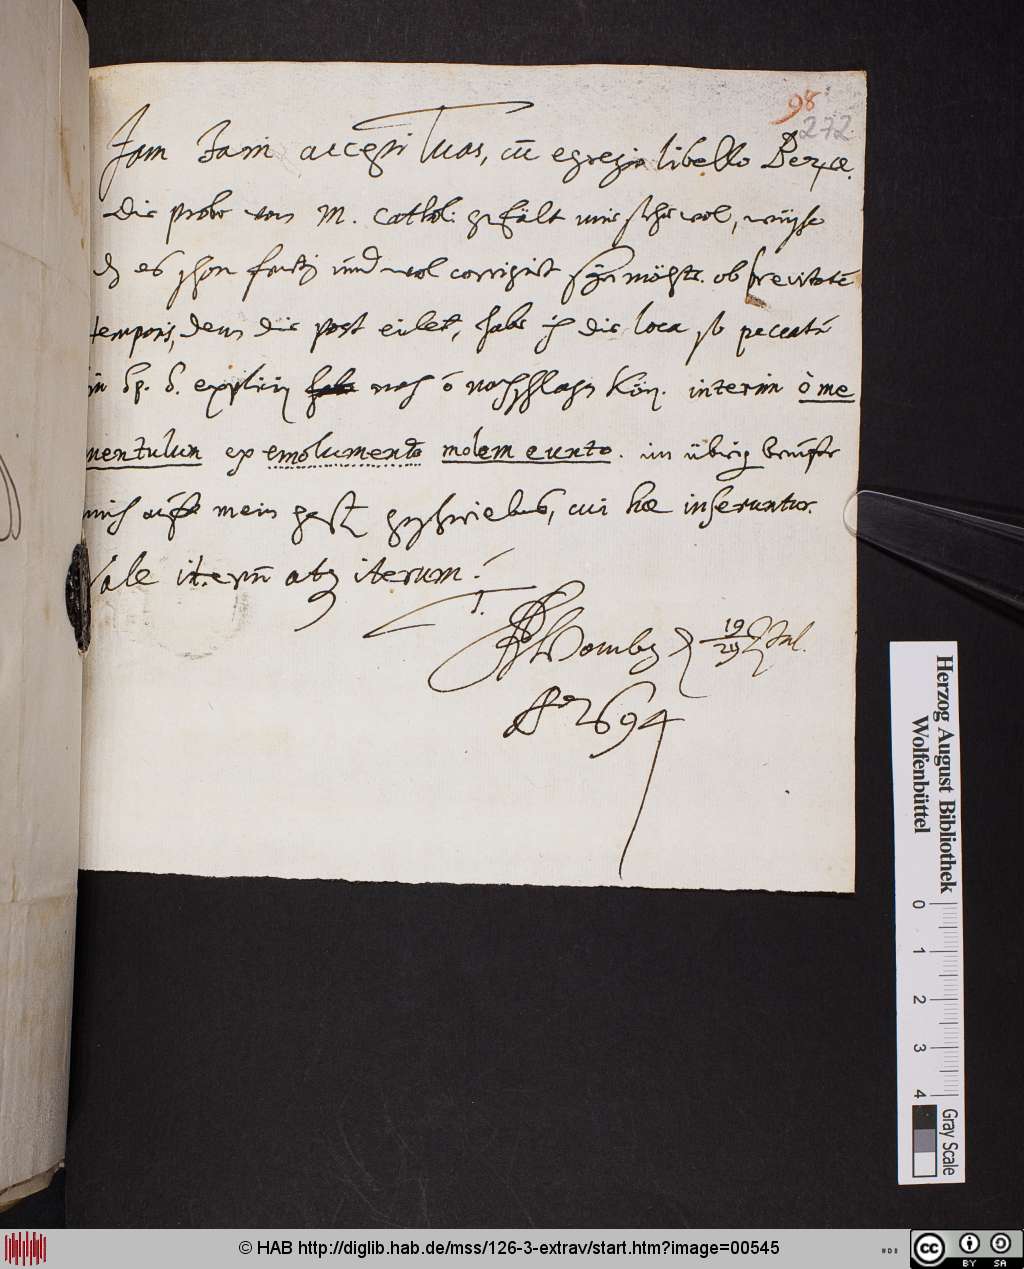 98
272
Jam Jam accepi Tuas, cū egregio libello Bezæ.
Die probe von M. Cathol: gefält mir sehr wol, wüste
dz es schon fertig und wol corrigirt sein möchte. ob brevitatē
temporis, denn die post eilet, habe ich die loca so peccata
in nach ō nachschlagen Kön. interim ô me
mentulum ex emolumento molem eunto. im übrig
mich auff mein geschrieben, cui hæ inseruntur.
Vale iterū atq iterum.
T.
19
29 Jul.
Aō 1694
Herzog August Bibliothek
Wolfenbüttel
0 1 2 3 4
Gray Scale
© HAB http://diglib.hab.de/mss/126-3-extrav/start.htm?image=00545
cc BY SA